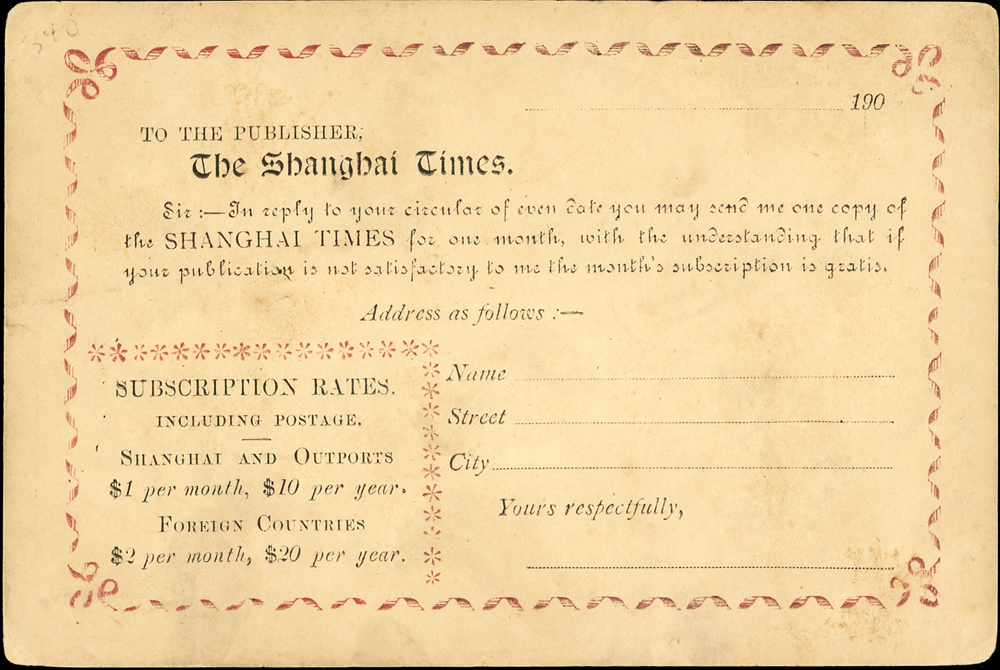 340
190
TO THE PUBLISHER,
The Shanghai Times.
Sir :—In reply to your circular of even date you may send me one copy of
the SHANGHAI TIMES for one month, with the understanding that if
your publication is not satisfactory to me the month's subscription is gratis.
Address as follows :—
SUBSCRIPTION RATES.
INCLUDING POSTAGE.
SHANGHAI AND OUTPORTS
$1 per month, $10 per year.
FOREIGN COUNTRIES
$2 per month, $20 per year.
Name
Street
City
Yours respectfully,